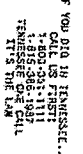 F YOU DIG IN TENNESSEE...
CALL US FIRST!
1-800-351-1111
1-615-366-1987
TENNESSEE ONE CALL
IT'S THE LAW